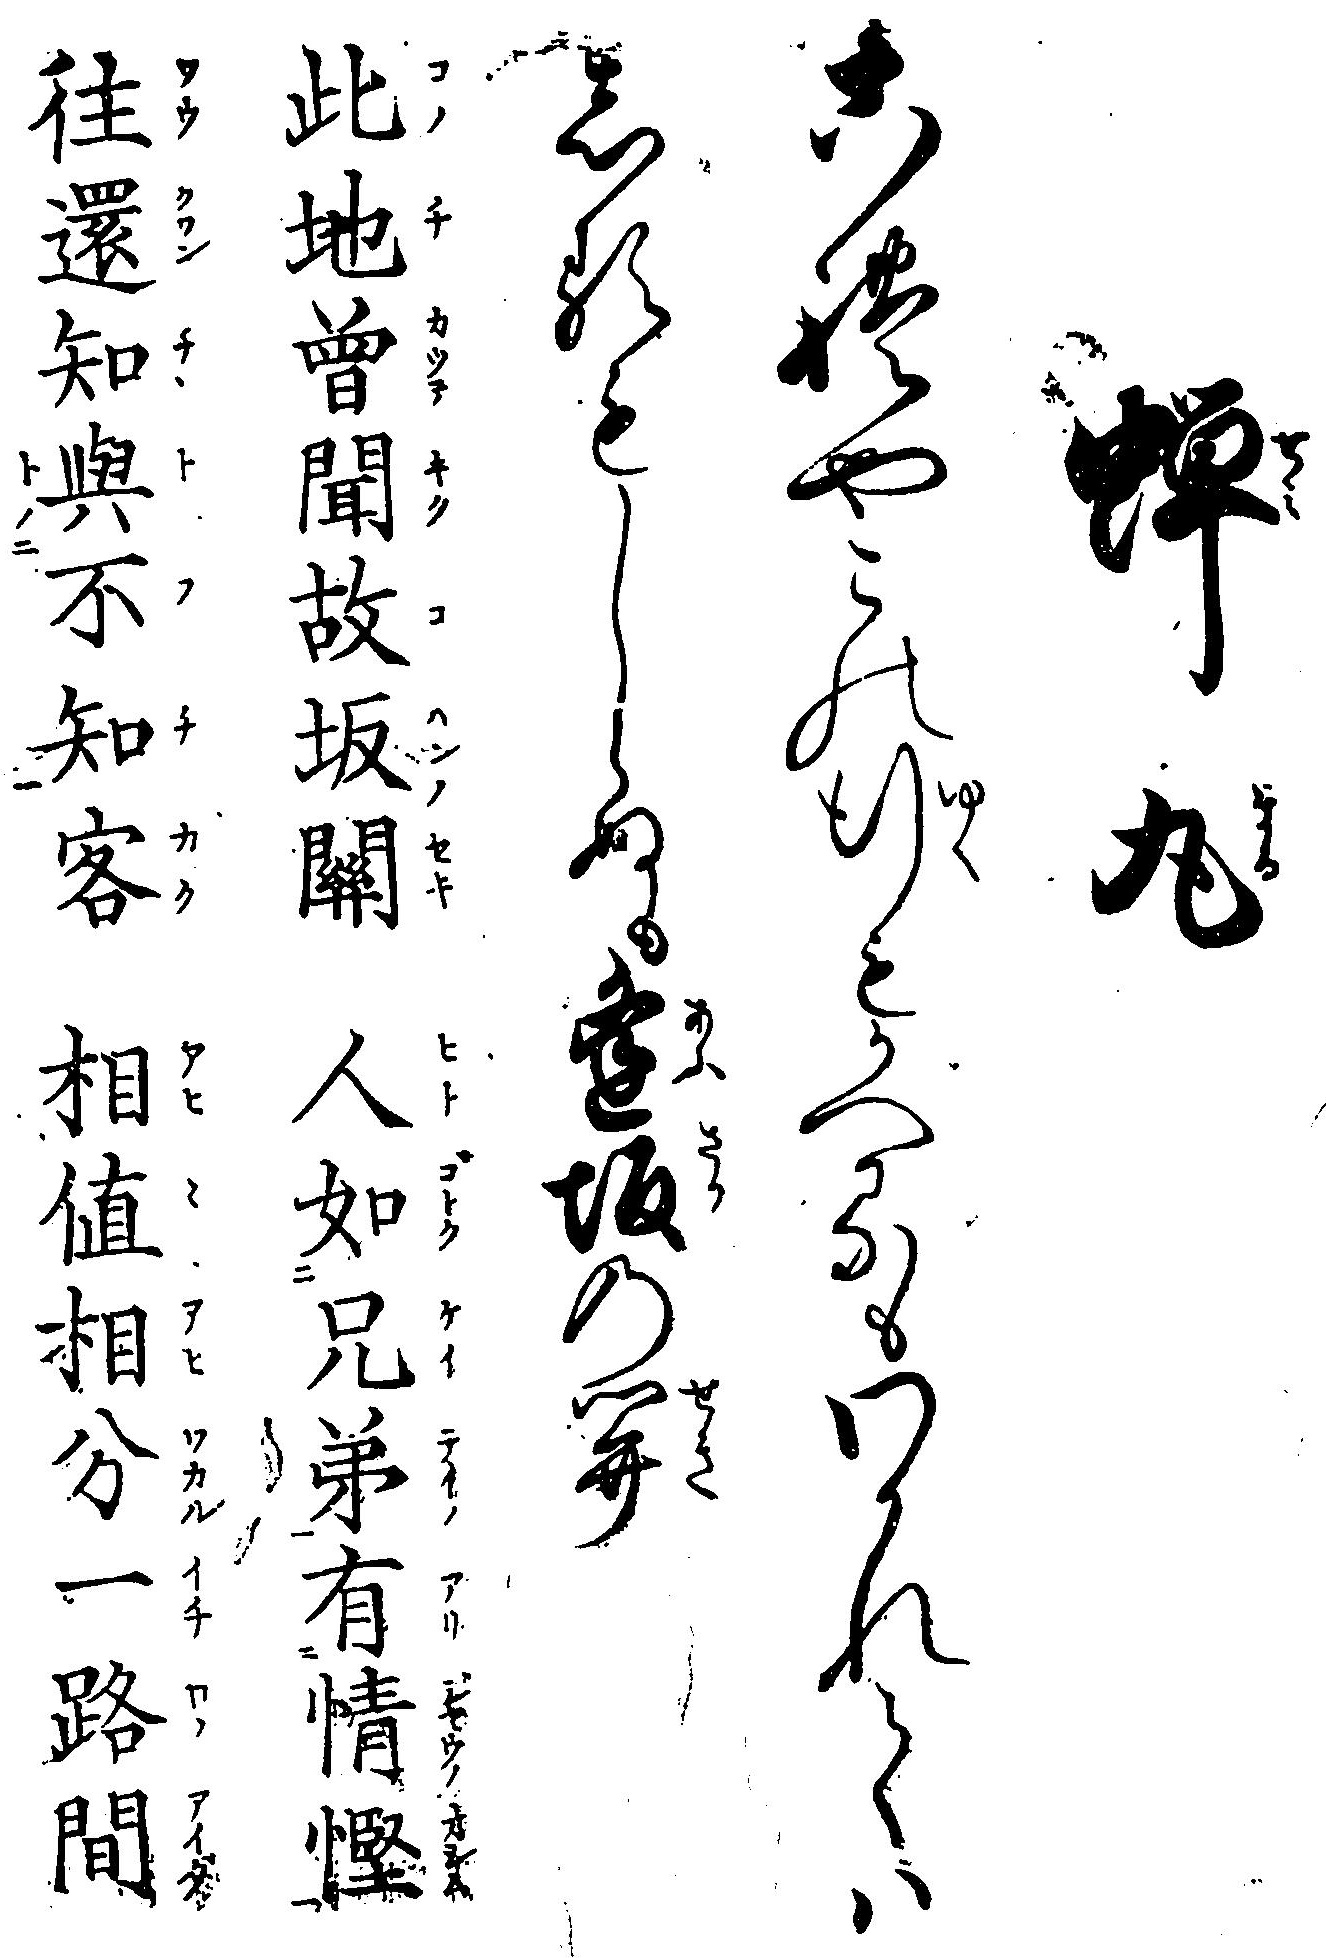 蝉丸
これやこの行もかへるもわかれては
しるもしらぬも逢坂の関
此地曾聞故坂關 人如兄弟有情慳
往還知與不知客 相値相分一路間